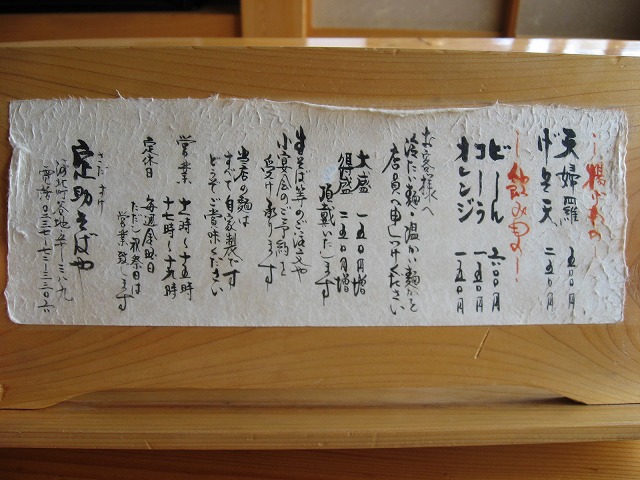 〜揚げもの〜
天婦羅 五〇〇円
げそ天 二五〇円
〜飲みもの〜
ビール 六〇〇円
コーラ 一五〇円
オレンジ 一五〇円
お客様へ
冷たい麺・温かい麺かを
店員へ申しつけください
大盛 一五〇円増
得盛 二五〇円増
頂戴いたします
生そば等のご注文や
小宴会のご予約も
受け承ります
当店の麺は
すべて自家製です
どうぞご賞味ください
営業 十一時〜十五時
十七時〜十九時
定休日 毎週金曜日
ただし祝祭日は
営業致します
さだ すけ
定助そばや
河北町谷地
電話